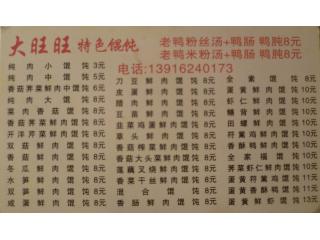 大旺旺 特色馄饨
老鸭粉丝汤+鸭肠 鸭肫8元
老鸭米粉汤+鸭肠 鸭肫8元
电话:13916240173
纯肉小馄饨 3元
纯肉中馄饨 5元
香菇荠菜鲜肉中馄饨 6元
纯肉大馄饨 8元
菜肉香菇馄饨 8元
香菇荠菜鲜肉馄饨 8元
开洋芹菜鲜肉馄饨 8元
双菇鲜肉馄饨 8元
香菇鲜肉馄饨 8元
冬瓜鲜肉馄饨 8元
双笋鲜肉馄饨 8元
咸蛋鲜肉馄饨 8元
刀豆鲜肉馄饨 8元
皮蛋鲜肉馄饨 8元
腊肉鲜肉馄饨 8元
豆苗鲜肉馄饨 8元
韭菜鸡蛋鲜肉馄饨 8元
香菇鲜肉馄饨 8元
香菇榨菜鲜肉馄饨 8元
香菇大头菜鲜肉馄饨 8元
莲藕叉烧鲜肉馄饨 8元
香菜干丝鲜肉馄饨 8元
混合馄饨 8元
香肠鲜肉馄饨 8元
全素馄饨 8元
蛋黄鲜肉馄饨
虾仁鲜肉馄饨
鳝背鲜肉馄饨
田螺鲜肉馄饨
符离鸡鲜肉馄饨
香酥鸡鲜肉馄饨
全家福馄饨
荠菜虾仁鲜肉馄饨
蛋黄符离鸡馄饨
蛋黄香酥鸭馄饨
蛋黄鲜虾馄饨 13元